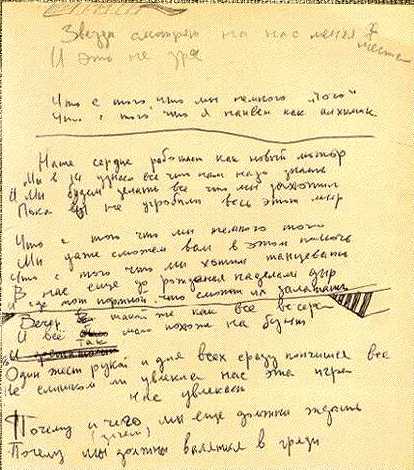 Звезда смотрит на нас меняя
места
И это не зря
Что с того, что мы немного "того"
Что с того что я наивен как алхимик
Наше сердце работает как новый мотор
Мы в 14 узнали все что нам надо знать
И мы будем делать все что мы захотим
Пока вы не угробили весь этот мир
Что с того что мы немного того
Мы даже сможем вам в этом помочь
Что с того что мы хотим танцевать
В нас еще до рожденья наделали дыр
И где тот портной что сможет их залатать
Вечер такой же как все вечера
И все так мало похоже на будни
Один жест рукой и для всех сразу кончится все
Не слишком ли увлекла нас эта игра
нас увлекли
Почему и чего мы еще должны ждать
(зачем)
Почему мы должны валяться в грязи